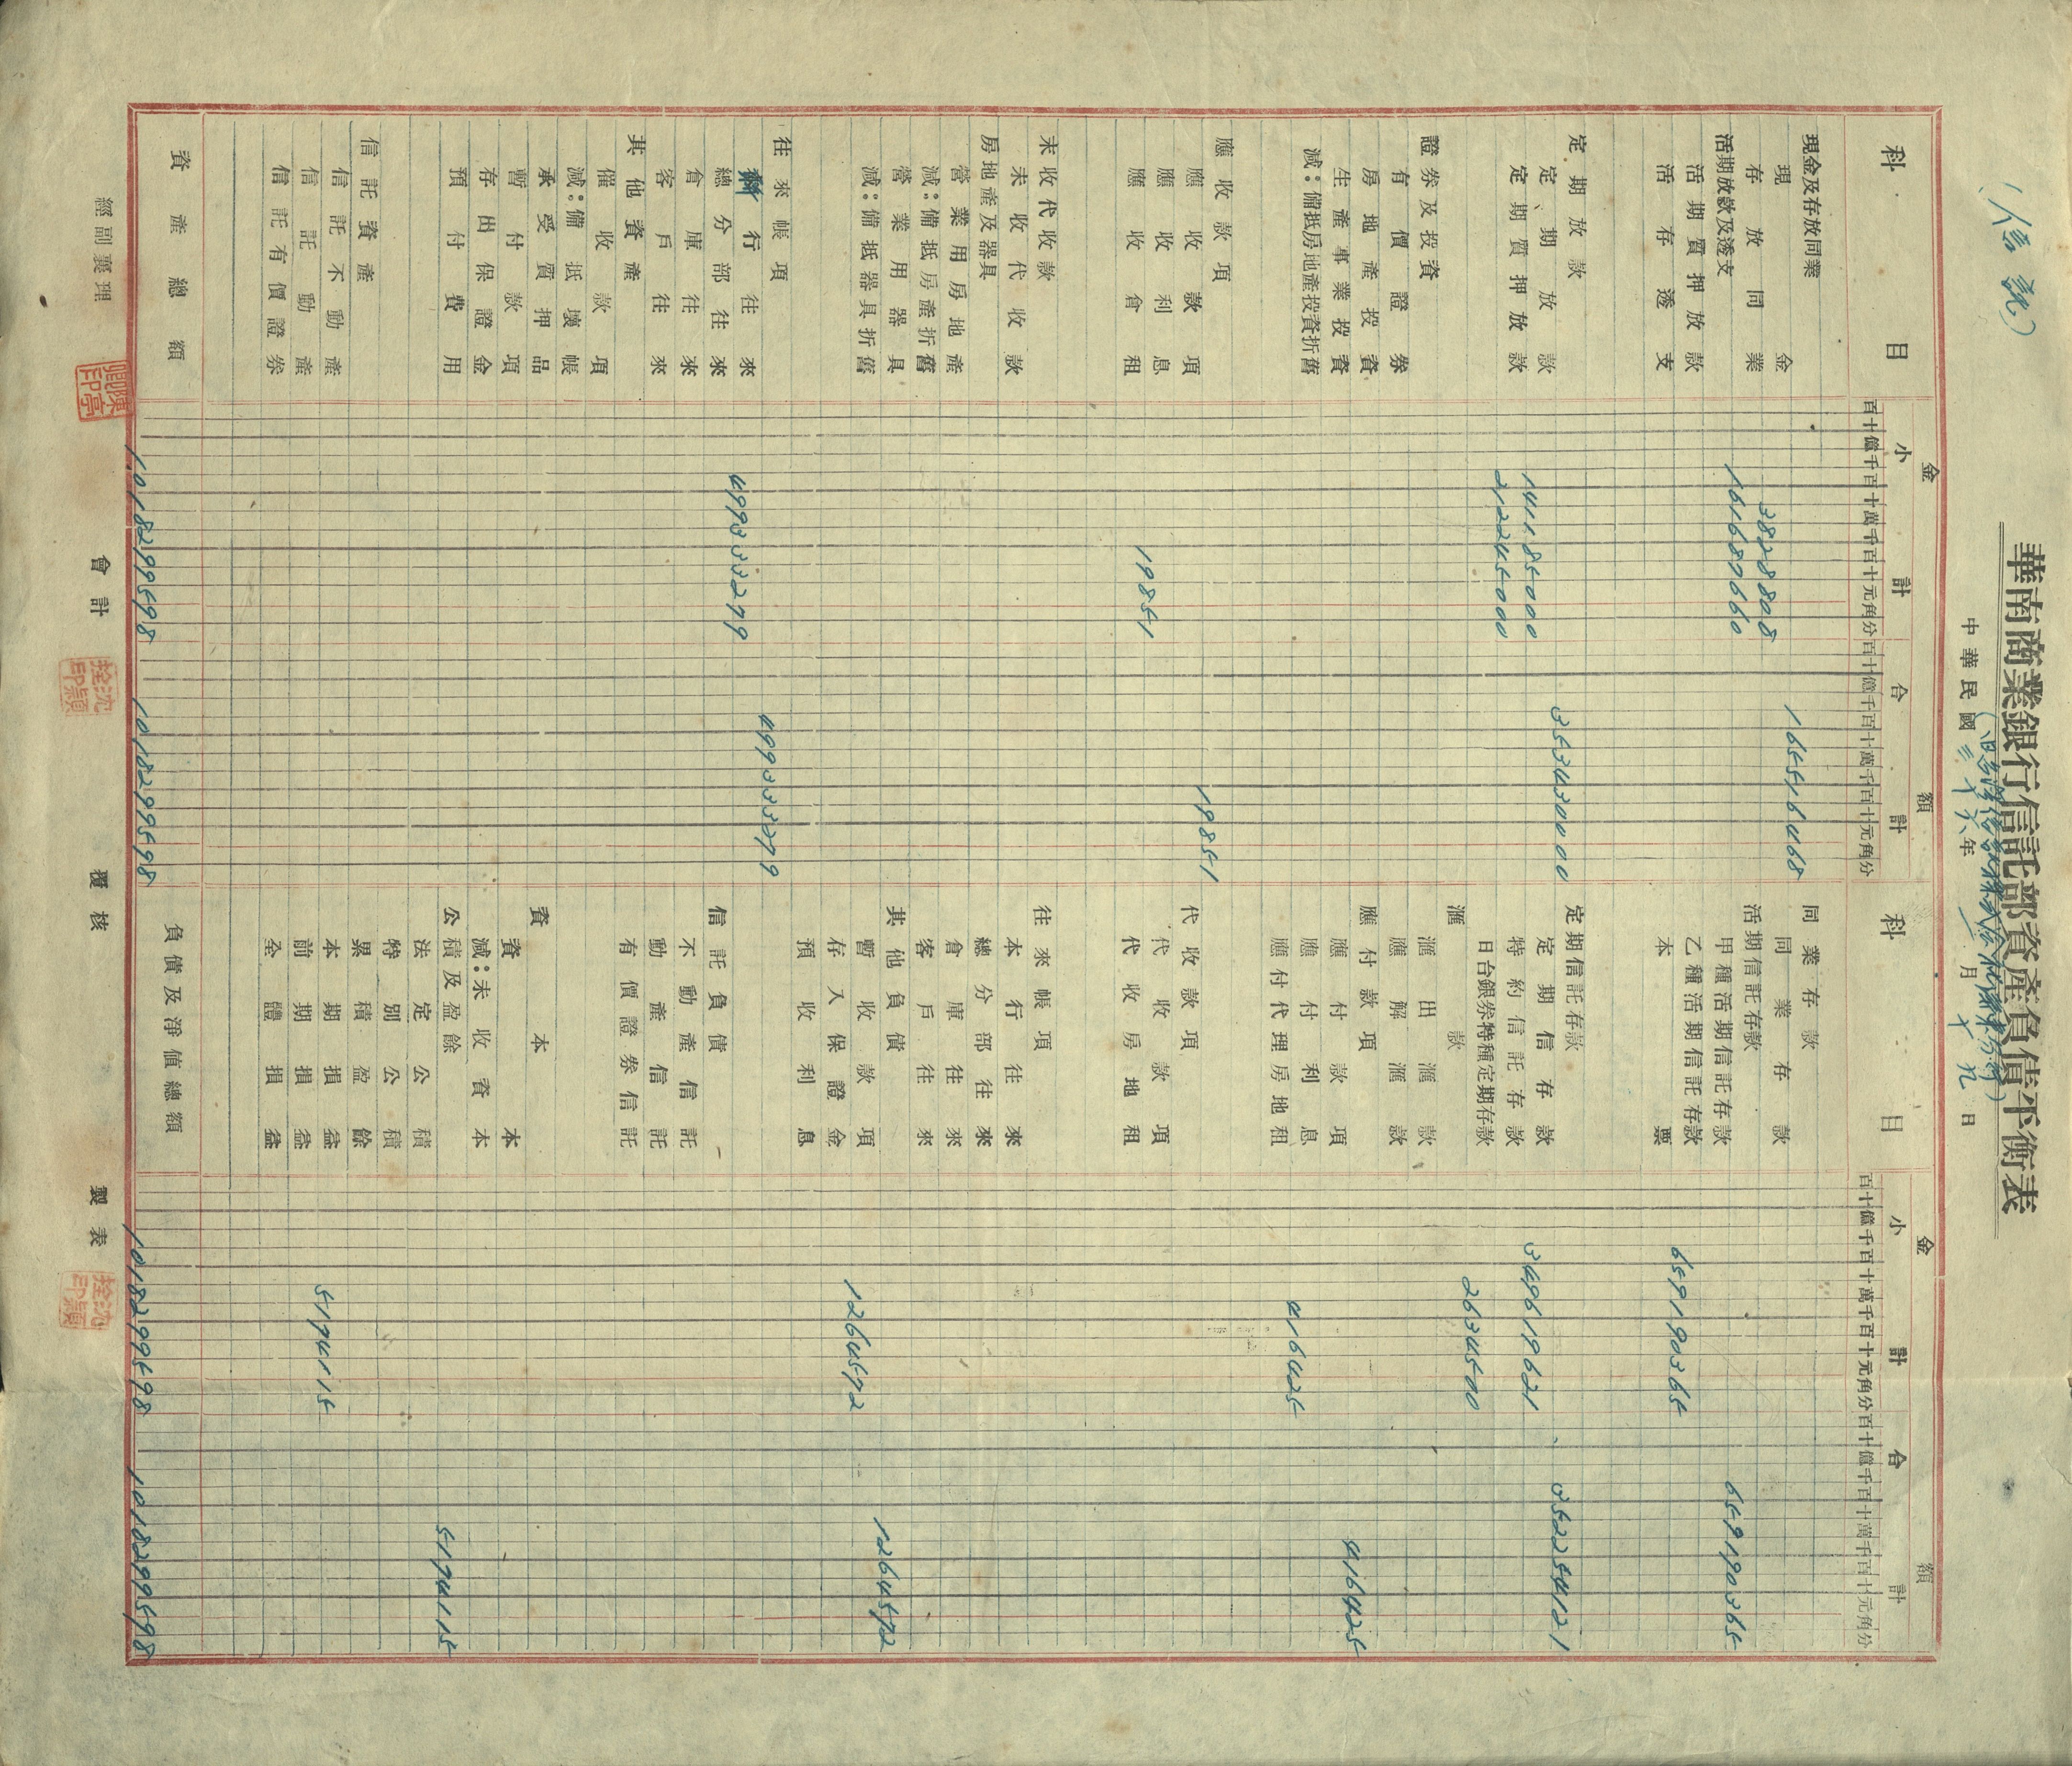 (信託)
華南商業銀行信託部資產負債平衡表
中華民國三十六年一月十九日
科目 金額 小計 合計 科目 金額 小計 合計
百十億千百十萬千百十元角分 百十億千百十萬千百十元角分 百十億千百十萬千百十元角分 百十億千百十萬千百十元角分
現金及存放同業 165516468 同業存款
現金 3828808 同業存款
存放同業 161687660 活期信託存款 659190365
活期放款及透支 甲種活期信託存款
活期質押放款 乙種活期信託存款 659190365
活存透支 本票
定期放款 353430000 定期信託存款 352254121
定期放款 141185000 定期信存款 349619621
定期質押放款 212245000 特約信託存款
日台銀券特種定期存款 2634500
證券及投資 匯款
有價證券 匯出匯款
房地產投資 匯解匯款
生產事業投資 應付款項 416425
減:備抵房地產投資折舊 應付款項
應付利息
應付代理房地租 416425
應收款項 19851 代收款項
應收款項 代收款項
應收利息 代收房地租
應收會租 19851
未收代收款 往來帳項
未收代收款 本行往來
房地產及器具 總分部往來
營業用房地產 倉庫往來
減:備抵房產折舊 客戶往來
營業用器具 其他負債 1264572
減:備抵器具折舊 暫收款項 1264572
存入保證金
預收利息
往來帳項 499333279
行往來 499333279
總分部往來 信託負債
倉庫往來 不動產信託
客戶往來 動產信託
其他資產 有價證券信託
催收款項
減:備抵壞帳
承受質押品 資本
暫付款項 資本
存出保證金 減:未收資本
預付費用 公積及盈餘 5174115
法定公積
特別公積
信託資產 累積盈餘
信託不動產 本期損益 5174115
信託動產 前期損益
信託有價證券 全體損益
資產總額 1018299598 1018299598 負債及淨值總額 1018299598 1018299598
經副襄理 會計 覆核 製表
陳卿亭印
沈拴穎印
沈拴穎印